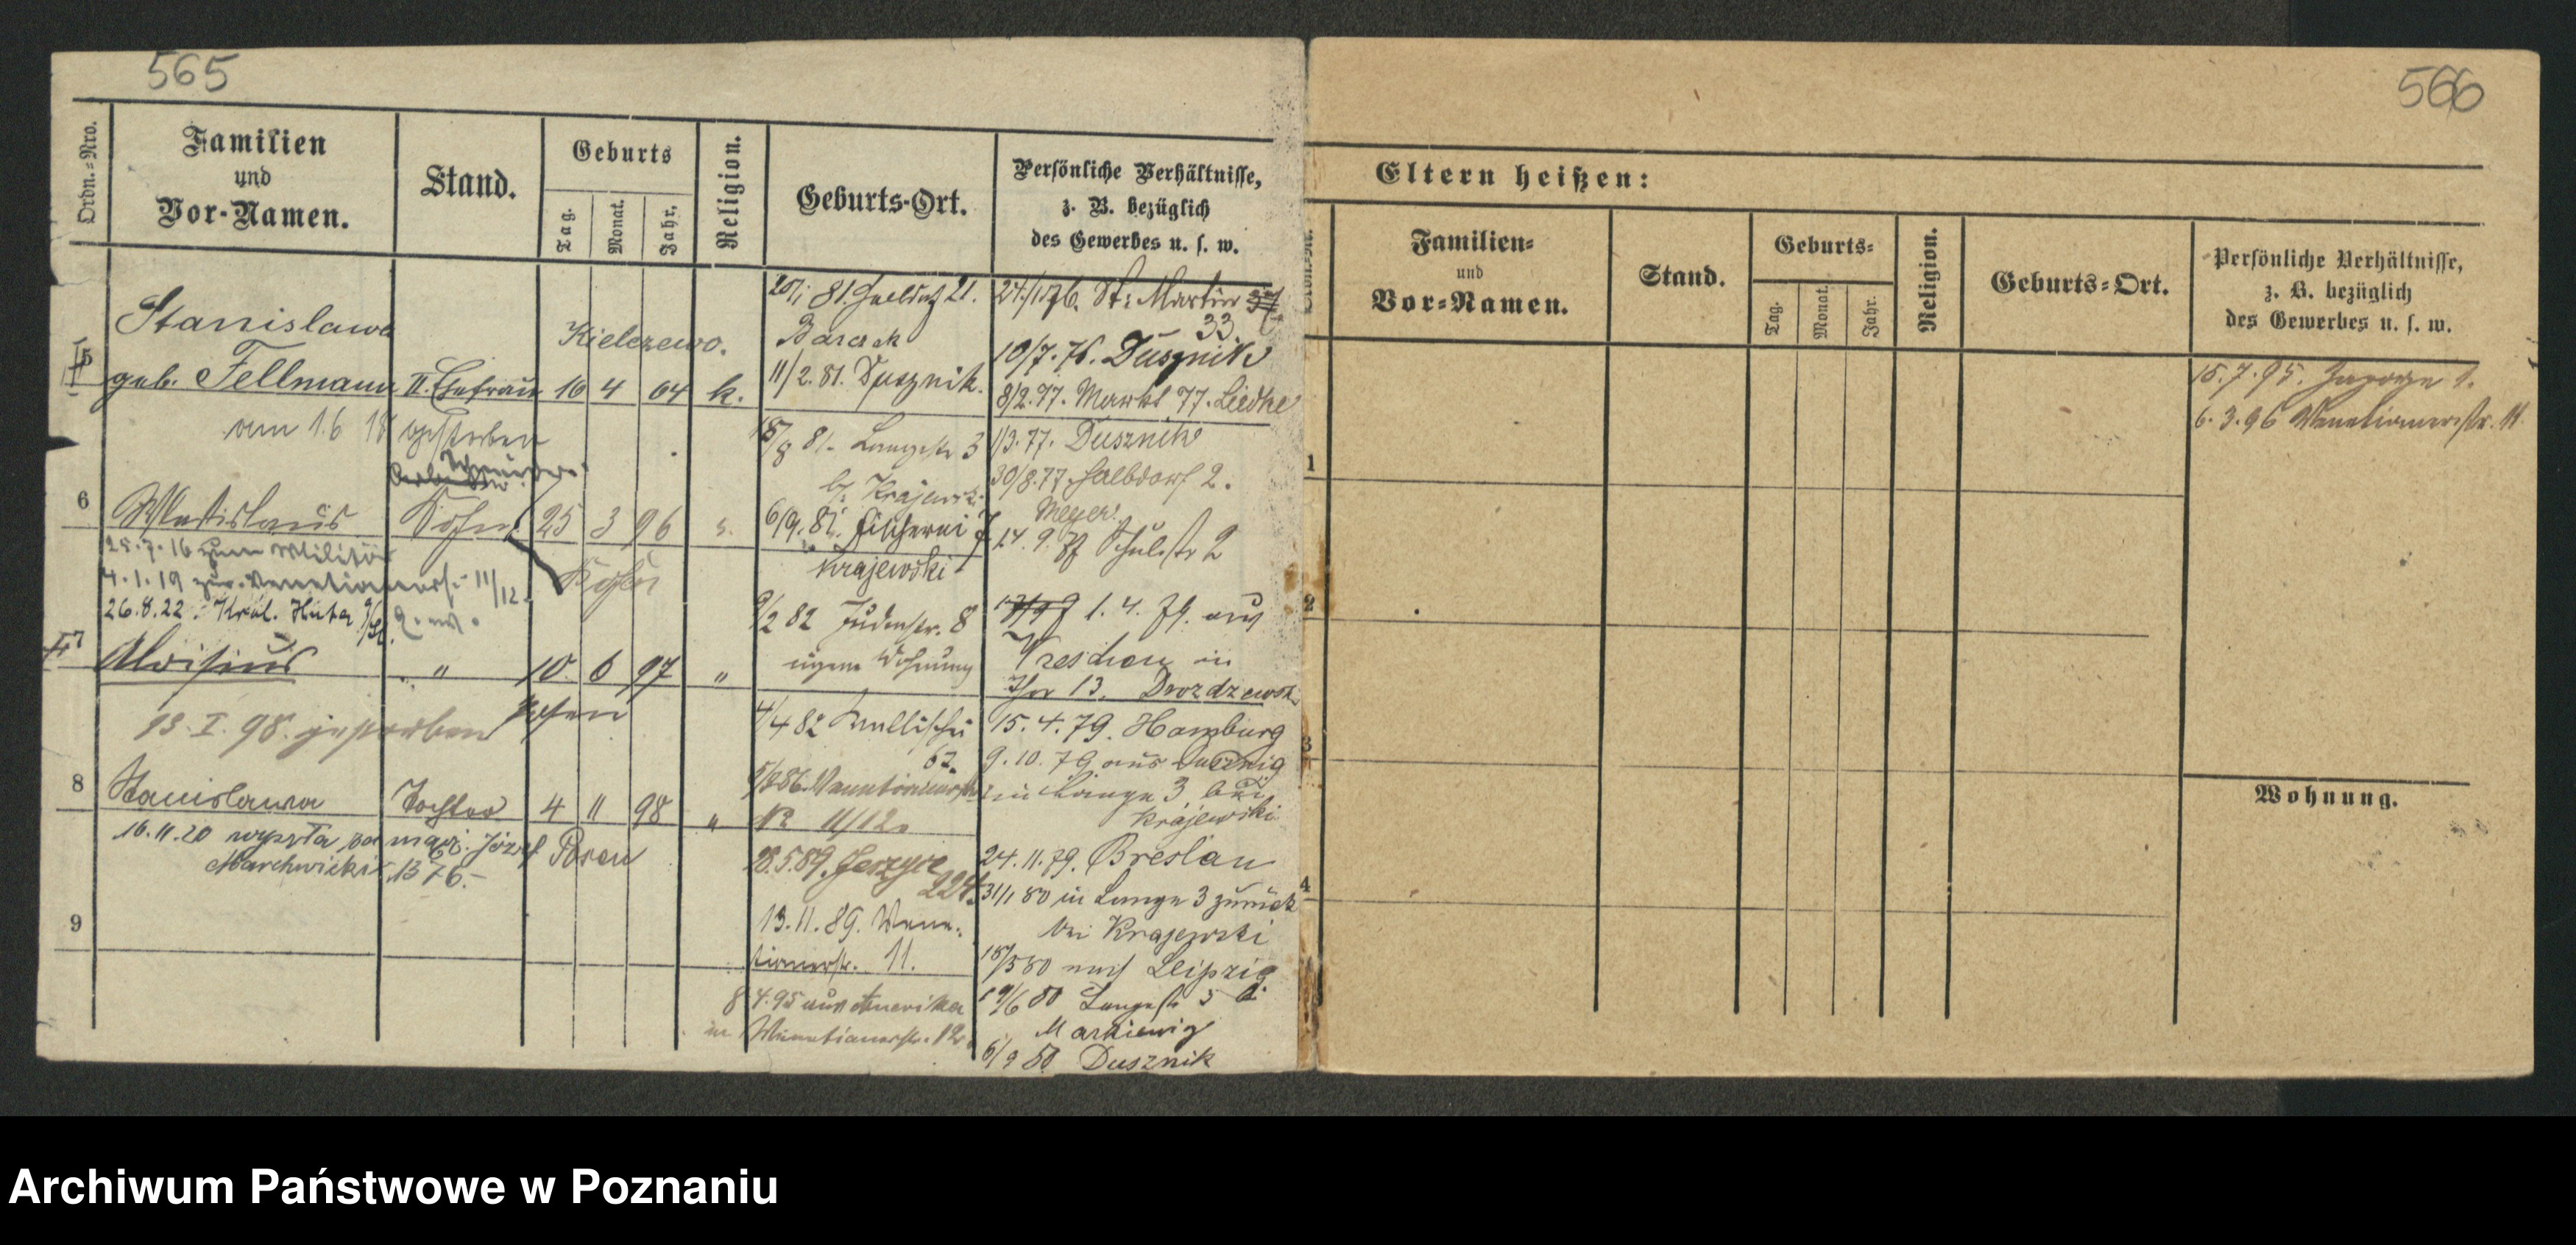 565
Ordn.-Nro.
Familien
und
Vor-Namen.
Stand.
Geburts
Tag.
Monat.
Jahr.
Religion.
Geburts-Ort.
Persönliche Verhältnisse,
z. B. bezüglich
des Gewerbes u. s. w.
5
Stanislawa
geb. Fellmann
II. Ehefrau
16 4 64 k.
Kielczewo.
am 1.6 18 gestorben
6
Wladislaus
Sohn
25 3 96
25.7.16 zum Militär
4.1.19 zur. Venetianerstr. 11/12.
26.8.22. Król. Huta
7
Aloisius
"
10. 6 97 "
Posen
13. I. 98. gestorben
8
Stanislawa
Tochter
4 11 98 "
Posen
16.11.20 wyszła za mąż. Józef
Marchwicki 1376.-
9
81.
21.
11/2. 81. Dusznik.
81. Langestr 3
b. Krajewsk.
6/9. 81.
Krajewski
9/2 82 Judenstr. 8
eigene Wohnung
4/4 82 Wallischei
62.
86. Venetianerstr
No 11/12.
28.5.89. Jerzyce
224.
13.11.89. Vene-
tianerstr. 11.
8 4.95 aus Amerika
in Venetianerstr. 12.
76. St. Martin
33
10/7. 76. Dusznik
8/2. 77. Markt 77. Liedke
1/3. 77. Dusznik
30/8. 77. Halbdorf 2.
Meyer.
14. 9. Schulstr 2
1. 4. 79. aus
Wreschen in
Thor 13. Drozdzewsk
15. 4. 79. Hamburg
9. 10. 79 aus Dusznig
in Lange 3 bei
Krajewski
24. 11. 79. Breslau
31/1 80 in Lange 3 zurück
bei Krajewski
80 nach Leipzig
19/6 80 Langestr 3 b.
6/9 80 Dusznik
566
Eltern heißen:
Familien-
und
Vor-Namen.
Stand.
Geburts-
Tag.
Monat.
Jahr.
Religion.
Geburts-Ort.
Persönliche Verhältnisse,
z. B. bezüglich
des Gewerbes u. s. w.
15. 7. 95.
6. 3. 96 Venetianerstr. 11.
1
2
3
4
Wohnung.
Archiwum Państwowe w Poznaniu